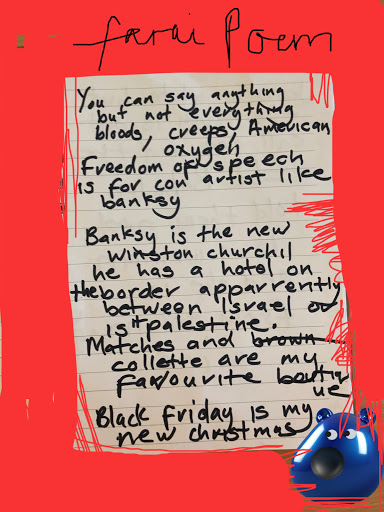 farai Poem
You can say anything
but not everything
bloods, creeps, American
oxygen
Freedom of speech
is for con artist like
banksy
Banksy is the new
winston churchil
he has a hotel on
the border apparrently
between Israel or
is it palestine.
Matches and brown
collette are my
favourite boutiq
ue
Black friday is my
new christmas